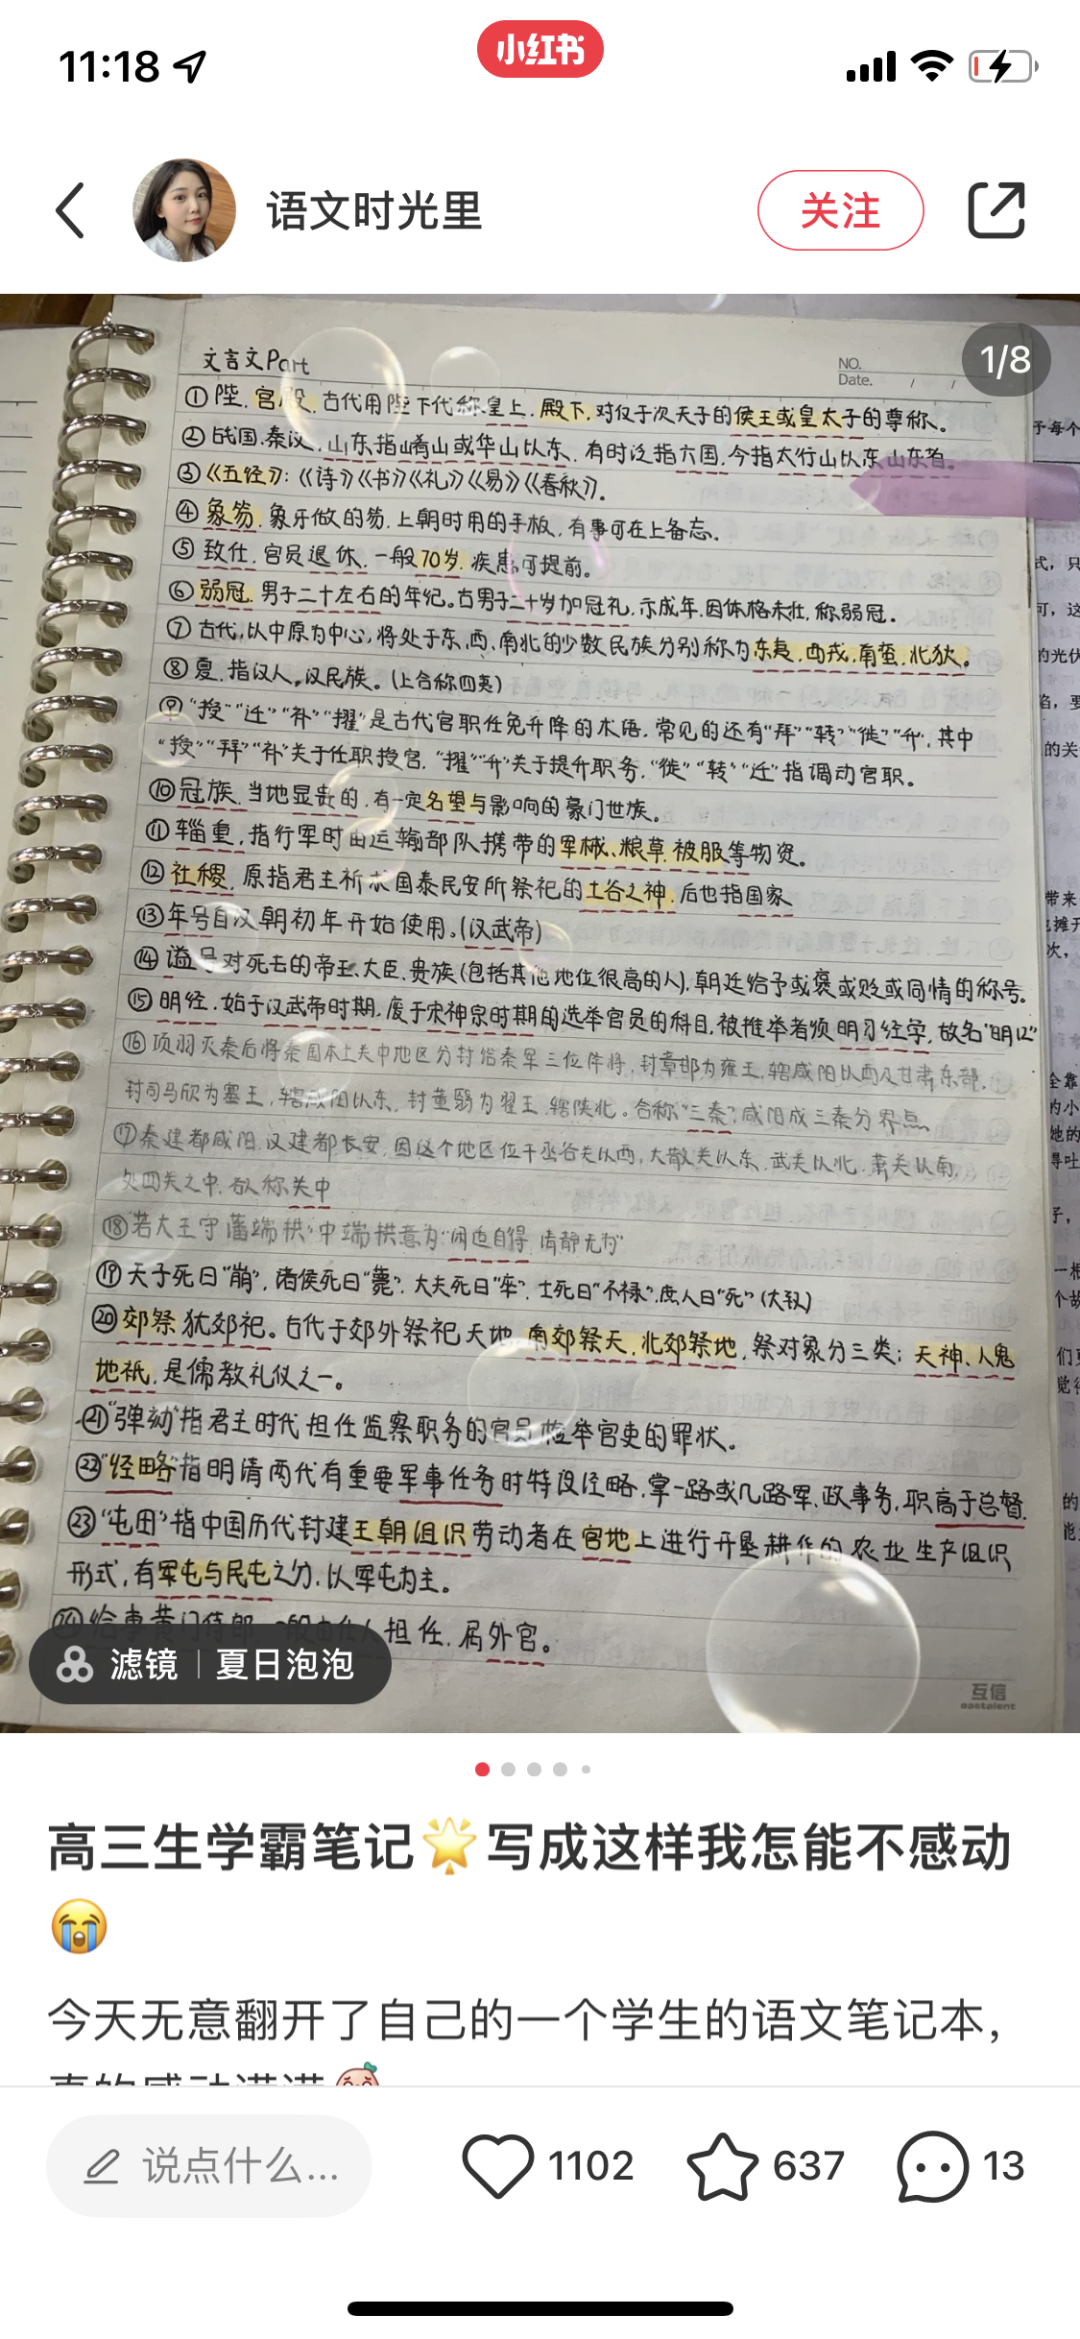 11:18
小红书
语文时光里
关注
1/8
文言文Part
NO.
Date. / /
①陛.宫殿.古代用陛下代称皇上.殿下.对仅于次天子的侯王或皇太子的尊称。
②战国.秦汉.山东指崤山或华山以东.有时泛指六国.今指太行山以东山东省。
③《五经》:《诗》《书》《礼》《易》《春秋》.
④象笏.象牙做的笏.上朝时用的手板.有事可在上备忘.
⑤致仕.官员退休.一般70岁.疾患可提前.
⑥弱冠.男子二十左右的年纪。古男子二十岁加冠礼.示成年.因体格未壮,称弱冠.
⑦古代,以中原为中心,将处于东.西.南北的少数民族分别称为东夷.西戎.南蛮.北狄。
⑧夏.指汉人.汉民族。(上合称四夷)
⑨"授""迁""补""擢"是古代官职任免升降的术语.常见的还有"拜""转""徙""升".其中
"授""拜""补"关于任职授官."擢""升"关于提升职务,"徙""转""迁"指调动官职.
⑩冠族.当地显贵的.有一定名望与影响的豪门世族.
⑪辎重,指行军时由运输部队携带的军械.粮草.被服等物资.
⑫社稷.原指君主祈求国泰民安所祭祀的土谷之神.后也指国家
⑬年号自汉朝初年开始使用.(汉武帝)
⑭谥号对死去的帝王.大臣.贵族(包括其他地位很高的人).朝廷给予或褒或贬或同情的称号.
⑮明经.始于汉武帝时期.废于宋神宗时期的选举官员的科目.被推举者须明习经学,故名"明经"
⑯项羽灭秦后将秦国本土关中地区分封给秦军三位降将,封章邯为雍王,辖咸阳以西及甘肃东部.
封司马欣为塞王,辖咸阳以东,封董翳为翟王.辖陕北。合称"三秦",咸阳成三秦分界点
⑰秦建都咸阳,汉建都长安,因这个地区位于函谷关以西,大散关以东,武关以北,萧关以南,
处四关之中.故称关中
⑱"若大王守藩端拱"中端拱意为"闲适自得 清静无为"
⑲天子死曰"崩",诸侯死曰"薨".大夫死曰"卒".士死曰"不禄".庶人曰"死"
⑳郊祭犹郊祀。古代于郊外祭祀天地.南郊祭天.北郊祭地.祭对象分三类:天神、人鬼
地祇.是儒教礼仪之一。
㉑"弹劾"指君主时代担任监察职务的官员检举官吏的罪状.
㉒"经略"指明清两代有重要军事任务时特设经略.掌一路或几路军.政事务.职高于总督.
㉓"屯田"指中国历代封建王朝组织劳动者在官地上进行开垦耕作的农业生产组织
形式.有军屯与民屯之分.以军屯为主.
㉔给事黄门侍郎 一般由仕人担任.属外官。
滤镜 | 夏日泡泡
互信
eastalent
高三生学霸笔记🌟写成这样我怎能不感动
😭
今天无意翻开了自己的一个学生的语文笔记本,
真的感动满满
说点什么...
1102
637
13